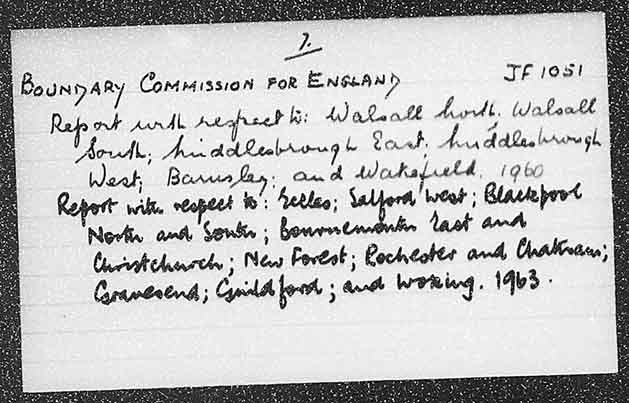 7.
BOUNDARY COMMISSION FOR ENGLAND JF 1051
Report with respect to: Walsall North, Walsall
South; Middlesbrough East, Middlesbrough
West; Barnsley; and Wakefield. 1960
Report with respect to: Eccles; Salford West; Blackpool
North and South; Bournemouth East and
Christchurch; New Forest; Rochester and Chatham;
Gravesend; Guildford; and Woking. 1963.